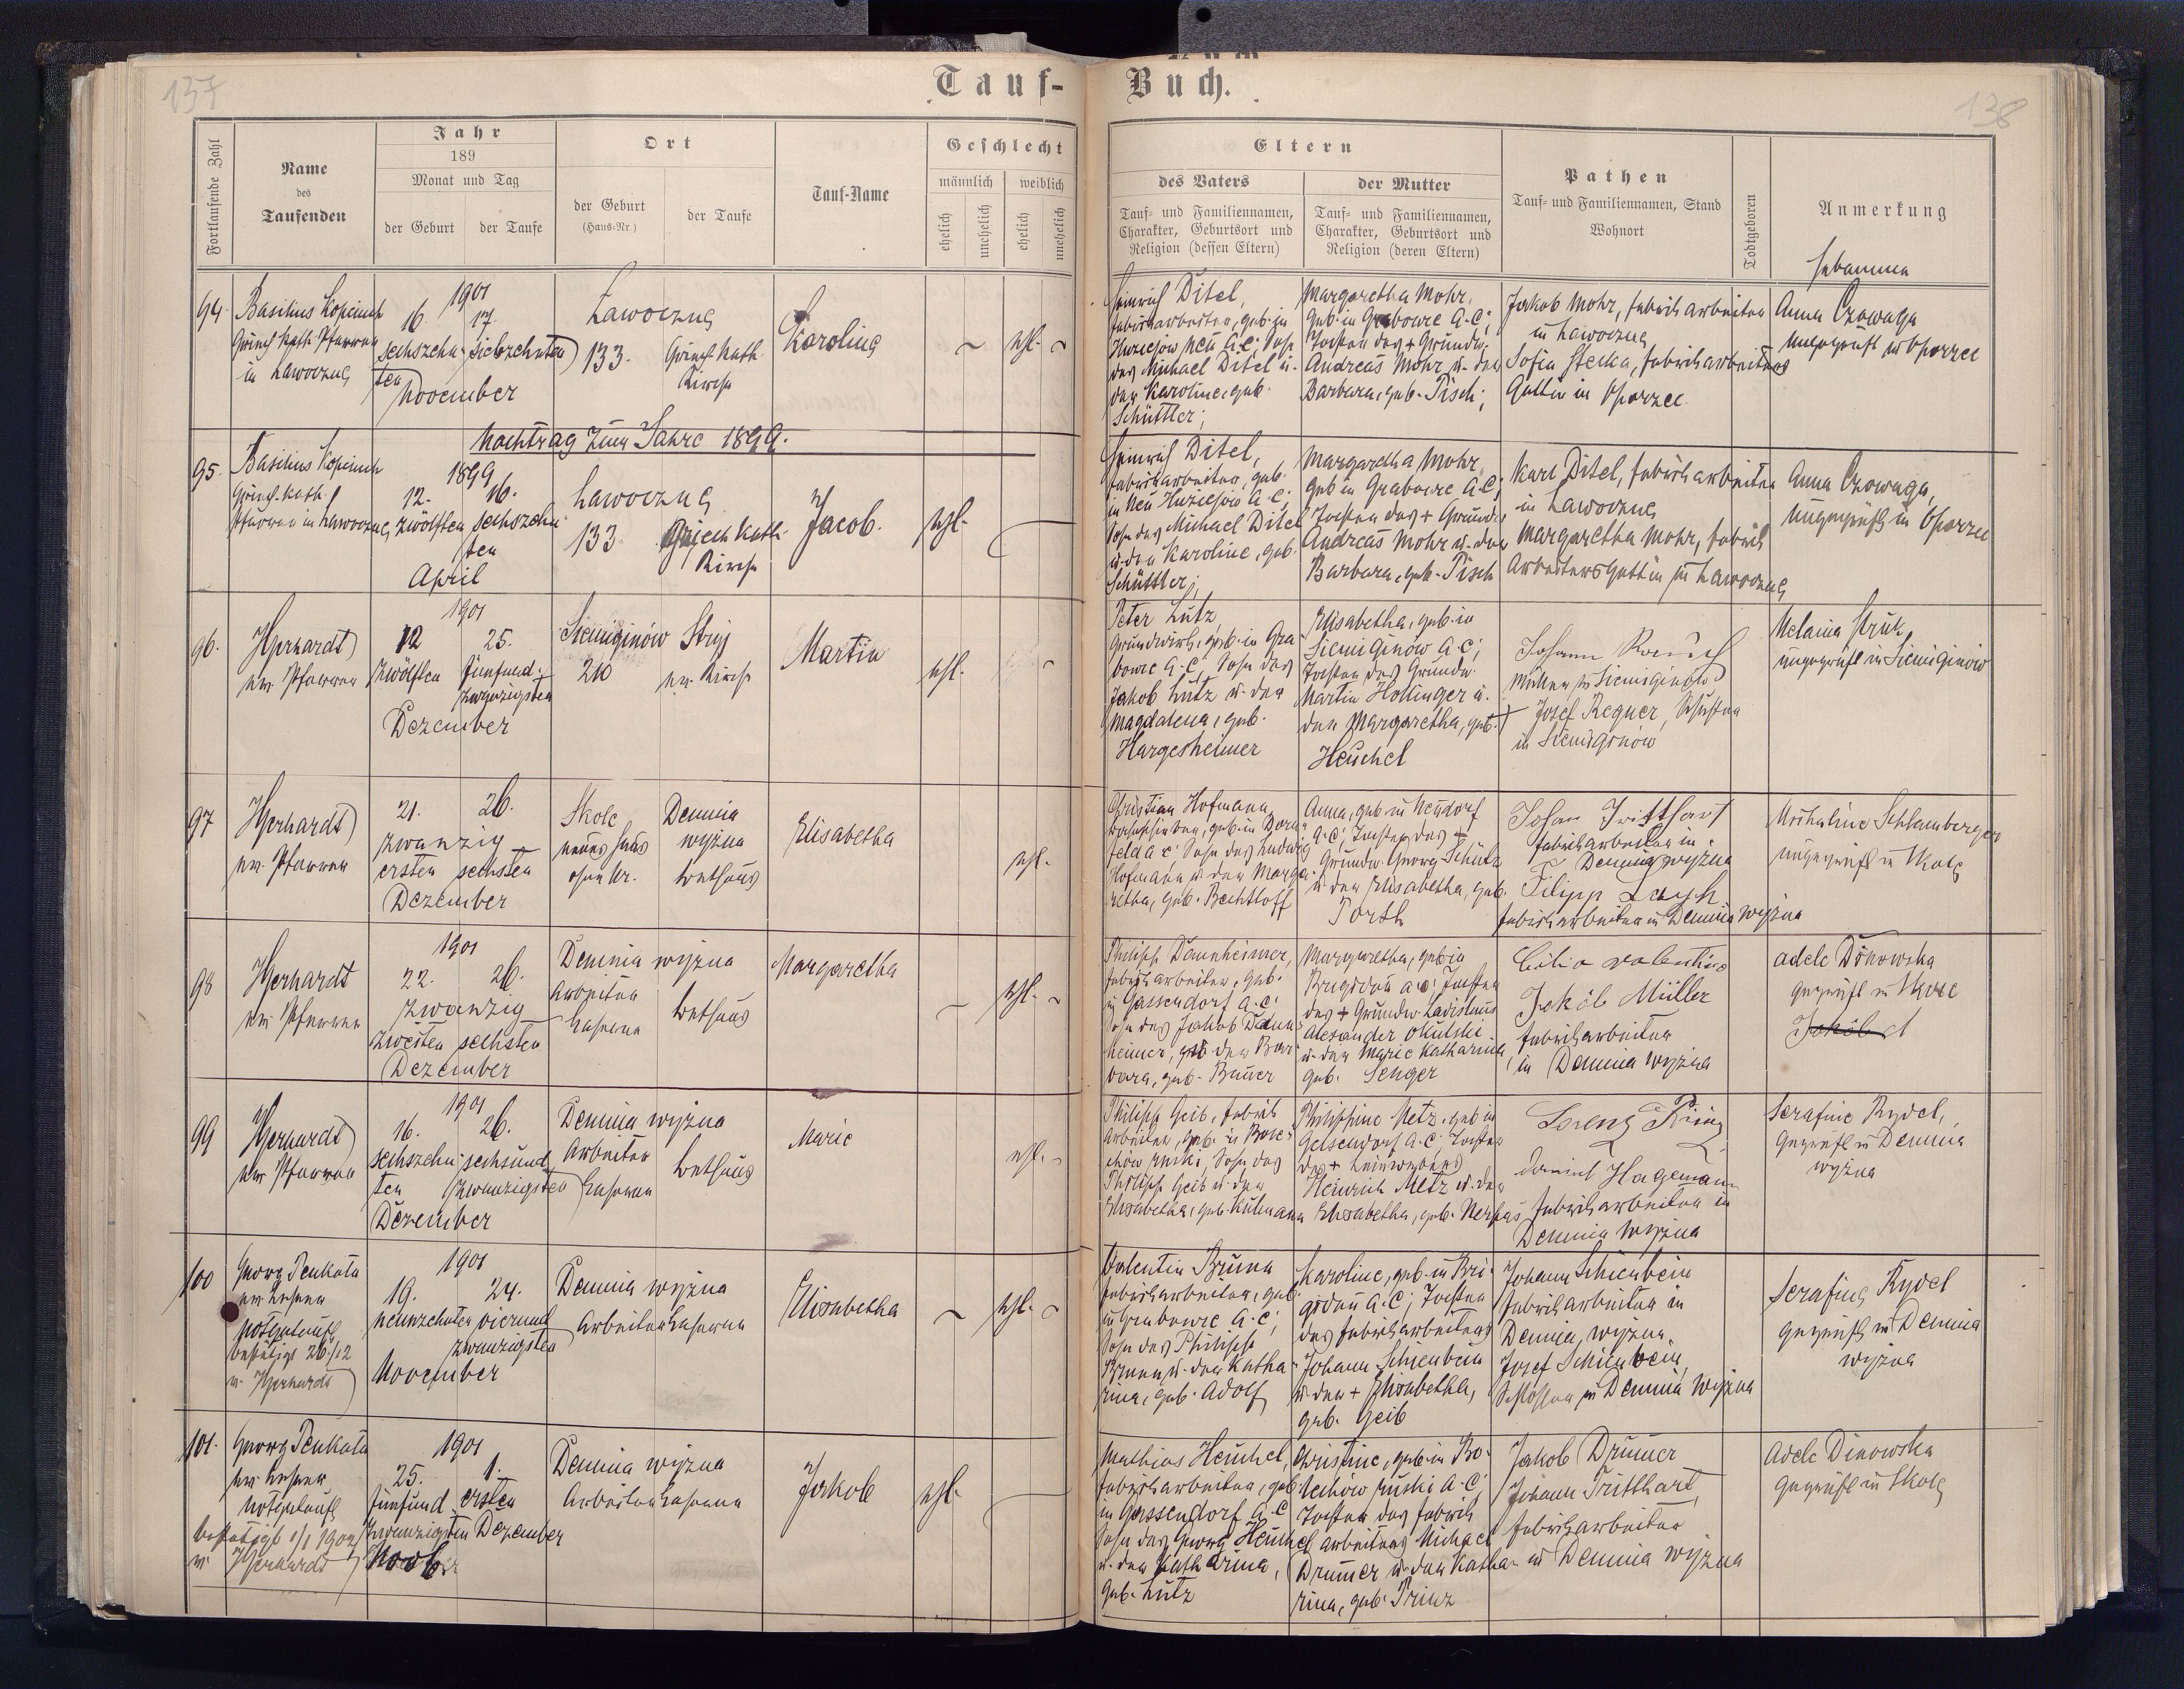 137
138
Tauf-
Buch.
Fortlaufende Zahl
Name
des
Taufenden
Jahr
189
Monat und Tag
der Geburt
der Taufe
Ort
der Geburt
(Haus-Nr.)
der Taufe
Tauf-Name
Geschlecht
männlich
weiblich
ehelich
unehelich
ehelich
unehelich
Eltern
des Vaters
Tauf- und Familiennamen,
Charakter, Geburtsort und
Religion (dessen Eltern)
der Mutter
Tauf- und Familiennamen,
Charakter, Geburtsort und
Religion (deren Eltern)
Pathen
Tauf- und Familiennamen, Stand
Wohnort
Todtgeboren
Anmerkung
Hebamme
94.
Basilius
Griech. Kath. Pfarrer
in Lawoczne
1901
16. 17.
sechszehn- siebzehnten
ten
November
Lawoczne
133. Griech. Kath.
Kirche
Karoline
ehl.
Heinrich Ditel,
Fabriksarbeiter, geb. in
neu A.C. Sohn
des Michael Ditel u.
der Karoline, geb.
Schüttler;
Margaretha Mohr,
geb. in Grabowce A.C;
Tochter des + Grundw.
Andreas Mohr u. der
Barbara, geb. Pisch;
Jakob Mohr, Fabriksarbeiter
in Lawoczne
Sofia Sterka, Fabriksarbeiters
Gattin in Oporzec
Anna Czowaga
ungeprüft in Oporzec
Nachtrag zum Jahre 1899.
95.
Basilius
Griech. Kath.
Pfarrer in Lawoczne
1899
12. 16.
zwölften sechszehn
ten
April
Lawoczne
133. Griech Kath.
Kirche
Jacob.
ehl.
Heinrich Ditel,
Fabriksarbeiter, geb.
in Neu A.C;
Sohn des Michael Ditel
u. der Karoline, geb.
Schüttler;
Margaretha Mohr,
geb in Grabowce A.C;
Tochter des + Grundw
Andreas Mohr u. der
Barbara, geb. Pisch
Karl Ditel, Fabriksarbeiter
in Lawoczne
Margaretha Mohr, Fabriks
Arbeiters Gattin in Lawoczne
Anna Czowaga,
ungeprüft in Oporzec
96.
Gerhardt
ev. Pfarrer
1901
12 25.
zwölften Fünfund-
zwanzigsten
Dezember
Siemiginów Stryj
210 ev. Kirche
Martin
ehl.
Peter Lutz,
Grundwirth, geb. in Gra-
bowce A.C. Sohn des
Jakob Lutz u. der
Magdalena, geb.
Hargesheimer
Elisabetha, geb. in
Siemiginow A.C;
Tochter des Grundw.
Martin Hollinger u.
der Margaretha, geb.
Heuchel
Johann
Müller in Siemiginow
Josef Regner, Schuster
in Siemiginow
Melania Struk
ungeprüft in Siemiginów
97
Gerhardt
ev. Pfarrer
21. 26.
zwanzig
ersten sechsten
Dezember
Skole Demnia
neues Haus wyżna
ohne Nr. Bethaus
Elisabetha
ehl.
Christian Hofmann,
geb. in Dorn-
feld A.C. Sohn des Ludwig
Hofmann u. der Marga-
retha, geb. Bechtloff
Anna, geb. in Neudorf
A.C; Tochter des +
Grundw. Georg Schütz
u. der Elisabetha, geb.
Porth
Johan Tritthart
Fabriksarbeiter in
Demnia wyżna
Filipp
Fabriksarbeiter in Demnia wyżna
Michaline Schlamberger
ungeprüft in Skole
98
Gerhardt
ev. Pfarrer
1901
22. 26.
zwanzig
zweiten sechsten
Dezember
Demnia wyżna
Arbeiter Bethaus
Caserne
Margaretha
ehl.
Philipp Dannheimer,
Fabriksarbeiter, geb.
in Gassendorf A.C.
Sohn des Jakob Dann-
heimer, u. der Bar-
bara, geb. Bauer
Margaretha, geb. in
Brigidau A.C; Tochter
des + Grundw. Ladislaus
Alexander Okulski
u. der Marie Katharina,
geb. Senger
Jakob Müller
Fabriksarbeiter
in Demnia wyżna
Adele Dinowska
geprüft in Skole
99
Gerhardt
ev. Pfarrer
1901
16. 26.
sechszehn- sechsund
ten zwanzigsten
Dezember
Demnia wyżna
Arbeiter Bethaus
Caserne
Marie
ehl.
Philipp Geib, Fabriks
Arbeiter, geb. in Bole-
chów ruski, Sohn des
Philipp Geib u. der
Elisabetha, geb. Kulmann
Philippine Metz, geb in
Gelsendorf A.C. Tochter
des + Leinwebers
Heinrich Metz u. der
Elisabetha, geb.
Lorenz Prinz
Daniel Hagemann
Fabriksarbeiter in
Demnia wyżna
Serafine Rydel,
geprüft in Demnia
wyżna
100
Georg Penkala
ev. Lehrer
notgetauft
bestätigt 26./12
Gerhardt
1901
19. 24.
neunzehnten vierund
zwanzigsten
November
Demnia wyżna
Arbeiter Caserne
Elisabetha
ehl.
Valentin Bruna
Fabriksarbeiter, geb.
in Grabowce A.C;
Sohn des Philipp
Bruna u. der Katha-
rina, geb. Adolf
Karoline, geb. in Bri-
gidau A.C; Tochter
des Fabriksarbeiters
Johann Schienbein
u. der + Elisabetha,
geb. Geib
Johann Schienbein
Fabriksarbeiter in
Demnia wyżna.
Josef Schienbein
Schlosser in Demnia wyżna
Serafine Rydel
geprüft in Demnia
wyżna
101.
Georg Penkala
ev. Lehrer
notgetauft
bestätigt 1/1 1902
Gerhardt
1901
25. 1.
fünfund- ersten
zwanzigsten Dezember
Novbr
Demnia wyżna
Arbeiter Caserne
Jakob
ehl.
Mathias Heuchel,
Fabriksarbeiter, geb.
in Gassendorf A.C
Sohn des Georg Heuchel
u. der Katharina,
geb. Lutz
Christine, geb. in Bo-
lechów ruski A.C;
Tochter des Fabriks
arbeiters Michael
Drummer u. der Katha-
rina, geb. Prinz
Jakob Drummer
Johann Tritthart
Fabriksarbeiter
in Demnia wyżna
Adele Dinowska
geprüft in Skole